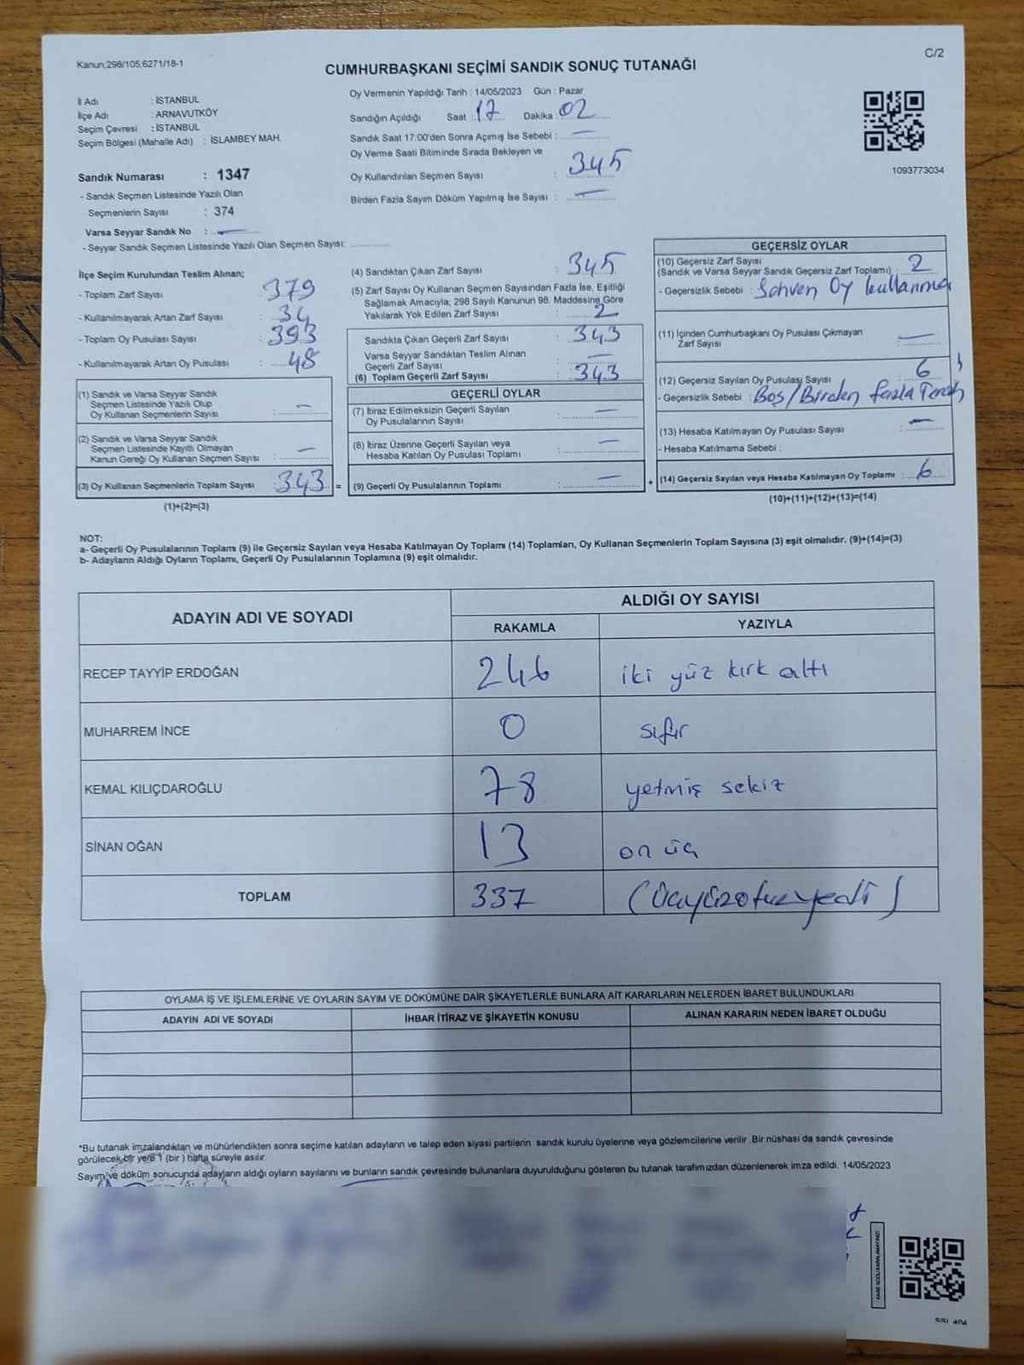 Kanun,298/105,6271/18-1
C/2
CUMHURBAŞKANI SEÇİMİ SANDIK SONUÇ TUTANAĞI
İl Adı : İSTANBUL
İlçe Adı : ARNAVUTKÖY
Seçim Çevresi : İSTANBUL
Seçim Bölgesi (Mahalle Adı) : İSLAMBEY MAH.
Sandık Numarası : 1347
- Sandık Seçmen Listesinde Yazılı Olan
Seçmenlerin Sayısı : 374
Varsa Seyyar Sandık No : —
- Seyyar Sandık Seçmen Listesinde Yazılı Olan Seçmen Sayısı:
Oy Vermenin Yapıldığı Tarih : 14/05/2023 Gün : Pazar
Sandığın Açıldığı Saat : 17 Dakika : 02
Sandık Saat 17:00'den Sonra Açımış İse Sebebi : —
Oy Verme Saati Bitiminde Sırada Bekleyen ve
Oy Kullandırılan Seçmen Sayısı : 345
Birden Fazla Sayım Döküm Yapılmış İse Sayısı : —
1093773034
İlçe Seçim Kurulundan Teslim Alınan;
- Toplam Zarf Sayısı : 379
- Kullanılmayarak Artan Zarf Sayısı : 34
- Toplam Oy Pusulası Sayısı : 393
- Kullanılmayarak Artan Oy Pusulası : 48
(1) Sandık ve Varsa Seyyar Sandık
Seçmen Listesinde Yazılı Olup
Oy Kullanan Seçmenlerin Sayısı : —
(2) Sandık ve Varsa Seyyar Sandık
Seçmen Listesinde Kayıtlı Olmayan
Kanun Gereği Oy Kullanan Seçmen Sayısı : —
(3) Oy Kullanan Seçmenlerin Toplam Sayısı : 343 =
(1)+(2)=(3)
(4) Sandıktan Çıkan Zarf Sayısı : 345
(5) Zarf Sayısı Oy Kullanan Seçmen Sayısından Fazla İse, Eşitliği
Sağlamak Amacıyla; 298 Sayılı Kanunun 98. Maddesine Göre
Yakılarak Yok Edilen Zarf Sayısı : 2
Sandıkta Çıkan Geçerli Zarf Sayısı : 343
Varsa Seyyar Sandıktan Teslim Alınan
Geçerli Zarf Sayısı : —
(6) Toplam Geçerli Zarf Sayısı : 343
GEÇERLİ OYLAR
(7) İtiraz Edilmeksizin Geçerli Sayılan
Oy Pusulalarının Sayısı : —
(8) İtiraz Üzerine Geçerli Sayılan veya
Hesaba Katılan Oy Pusulası Toplamı : —
(9) Geçerli Oy Pusulalarının Toplamı : — +
GEÇERSİZ OYLAR
(10) Geçersiz Zarf Sayısı
(Sandık ve Varsa Seyyar Sandık Geçersiz Zarf Toplamı) : 2
- Geçersizlik Sebebi : Sehven Oy kullanma
(11) İçinden Cumhurbaşkanı Oy Pusulası Çıkmayan
Zarf Sayısı : —
(12) Geçersiz Sayılan Oy Pusulası Sayısı : 6
- Geçersizlik Sebebi : Boş/Birden fazla Tercih
(13) Hesaba Katılmayan Oy Pusulası Sayısı : —
- Hesaba Katılmama Sebebi :
(14) Geçersiz Sayılan veya Hesaba Katılmayan Oy Toplamı : 6
(10)+(11)+(12)+(13)=(14)
NOT:
a- Geçerli Oy Pusulalarının Toplamı (9) ile Geçersiz Sayılan veya Hesaba Katılmayan Oy Toplamı (14) Toplamları, Oy Kullanan Seçmenlerin Toplam Sayısına (3) eşit olmalıdır. (9)+(14)=(3)
b- Adayların Aldığı Oyların Toplamı, Geçerli Oy Pusulalarının Toplamına (9) eşit olmalıdır.
ADAYIN ADI VE SOYADI
ALDIĞI OY SAYISI
RAKAMLA YAZIYLA
RECEP TAYYİP ERDOĞAN 246 iki yüz kırk altı
MUHARREM İNCE 0 sıfır
KEMAL KILIÇDAROĞLU 78 yetmiş sekiz
SİNAN OĞAN 13 on üç
TOPLAM 337 (üçyüzotuzyedi)
OYLAMA İŞ VE İŞLEMLERİNE VE OYLARIN SAYIM VE DÖKÜMÜNE DAİR ŞİKAYETLERLE BUNLARA AİT KARARLARIN NELERDEN İBARET BULUNDUKLARI
ADAYIN ADI VE SOYADI İHBAR İTİRAZ VE ŞİKAYETİN KONUSU ALINAN KARARIN NEDEN İBARET OLDUĞU
*Bu tutanak imzalandıktan ve mühürlendikten sonra seçime katılan adayların ve talep eden siyasi partilerin sandık kurulu üyelerine veya gözlemcilerine verilir .Bir nüshası da sandık çevresinde
görülecek bir yere 1 (bir ) hafta süreyle asılır.
Sayım ve döküm sonucunda adayların aldığı oyların sayılarını ve bunların sandık çevresinde bulunanlara duyurulduğunu gösteren bu tutanak tarafımızdan düzenlenerek imza edildi. 14/05/2023